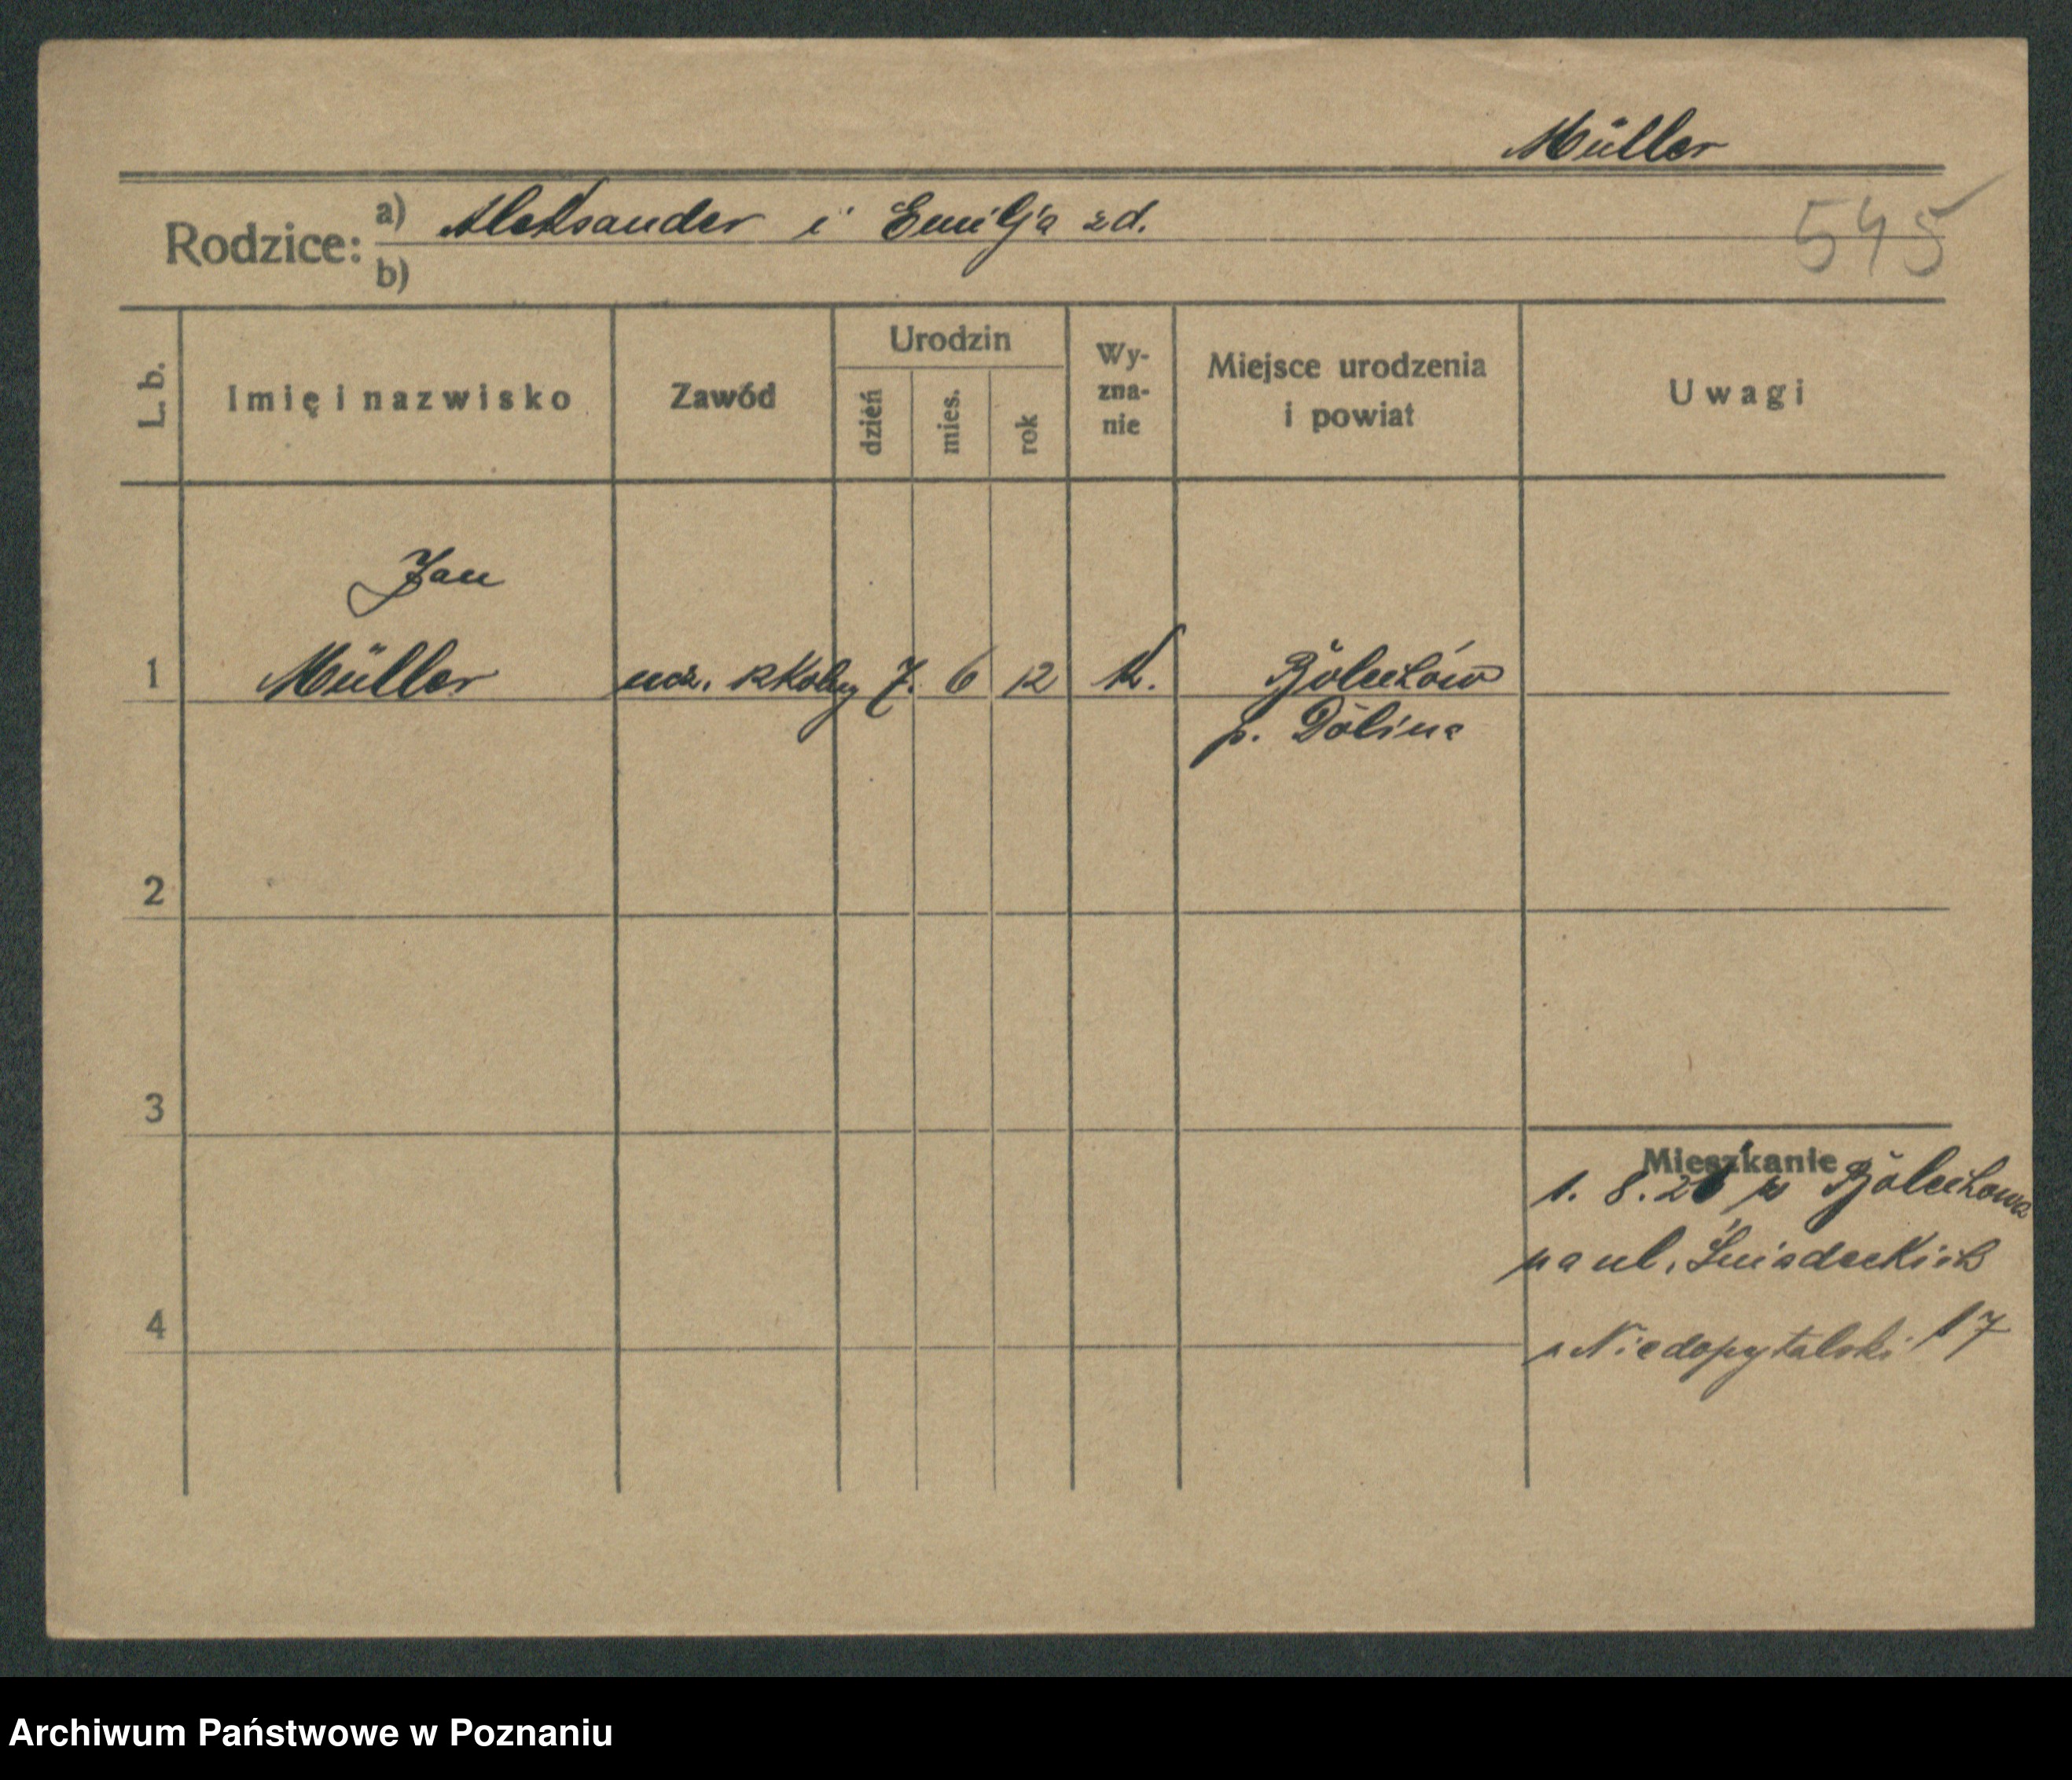 Müller
Rodzice: a) Aleksander i Emilja zd.
b)
545
L. b. Imię i nazwisko Zawód Urodzin dzień mies. rok Wy-zna-nie Miejsce urodzenia i powiat Uwagi
Jan
1 Müller ucz. szkoły 7. 6 12 k. Bolechów
p. Dolina
2
3
Mieszkanie
1. 8. 26 z Bolechowa
na ul. Śniadeckich
u Niedopytalski 17
4
Archiwum Państwowe w Poznaniu